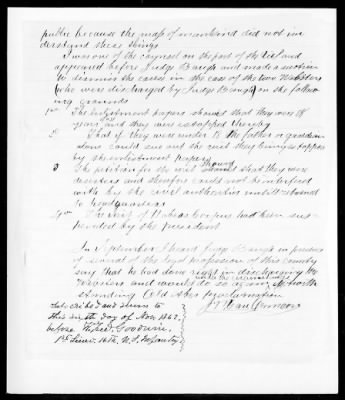 public because the mass of mankind did not un-
derstand these things
I was one of the counsel on the part of the and
appeared before Judge Baugh and made a motion
to dismiss the cases in the case of the two Websters
(who were discharged by Judge Baugh) on the follow-
ing grounds
1st The enlistment papers showed that they were 18
years and they were estopped thereby
2 That if they were under 18 the father or guardian
alone could sue out the writ they being estopped
by the enlistment papers
3 The petition for the writ showed that they were
deserters and therefore could not be interfered
with by the civil authorities until returned
to headquarters
4th The writ of Habias Corpus had been sus-
pended by the president
In September I heard Judge Baugh in presence
of several of the legal profession of this county
say that he had done right in discharging the
prisoners and would do so again notwith
standing Old Abes proclamation
Subscribed and sworn to
this day of Nov. 1862.
before Goodwin,
1st Lieut. 16th. U.S. Infantry